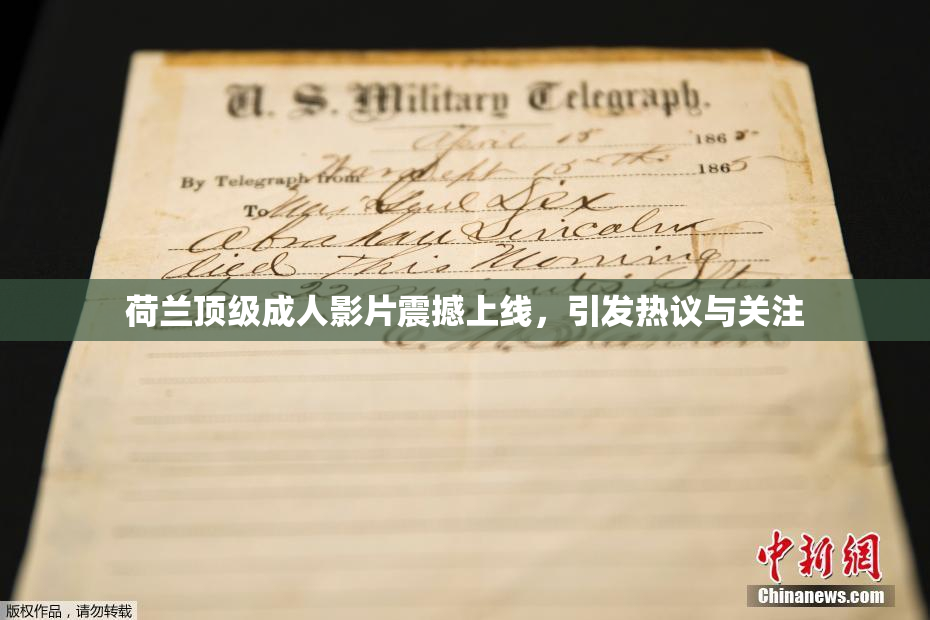 U. S. Military Telegraph.
April 15 1865
By Telegraph from War Dept 15th 1865
To Maj Genl Dix
Abraham Lincoln
died This Morning
at 22 minutes after
荷兰顶级成人影片震撼上线，引发热议与关注
E. M. Stanton
中新网
Chinanews.com
版权作品，请勿转载